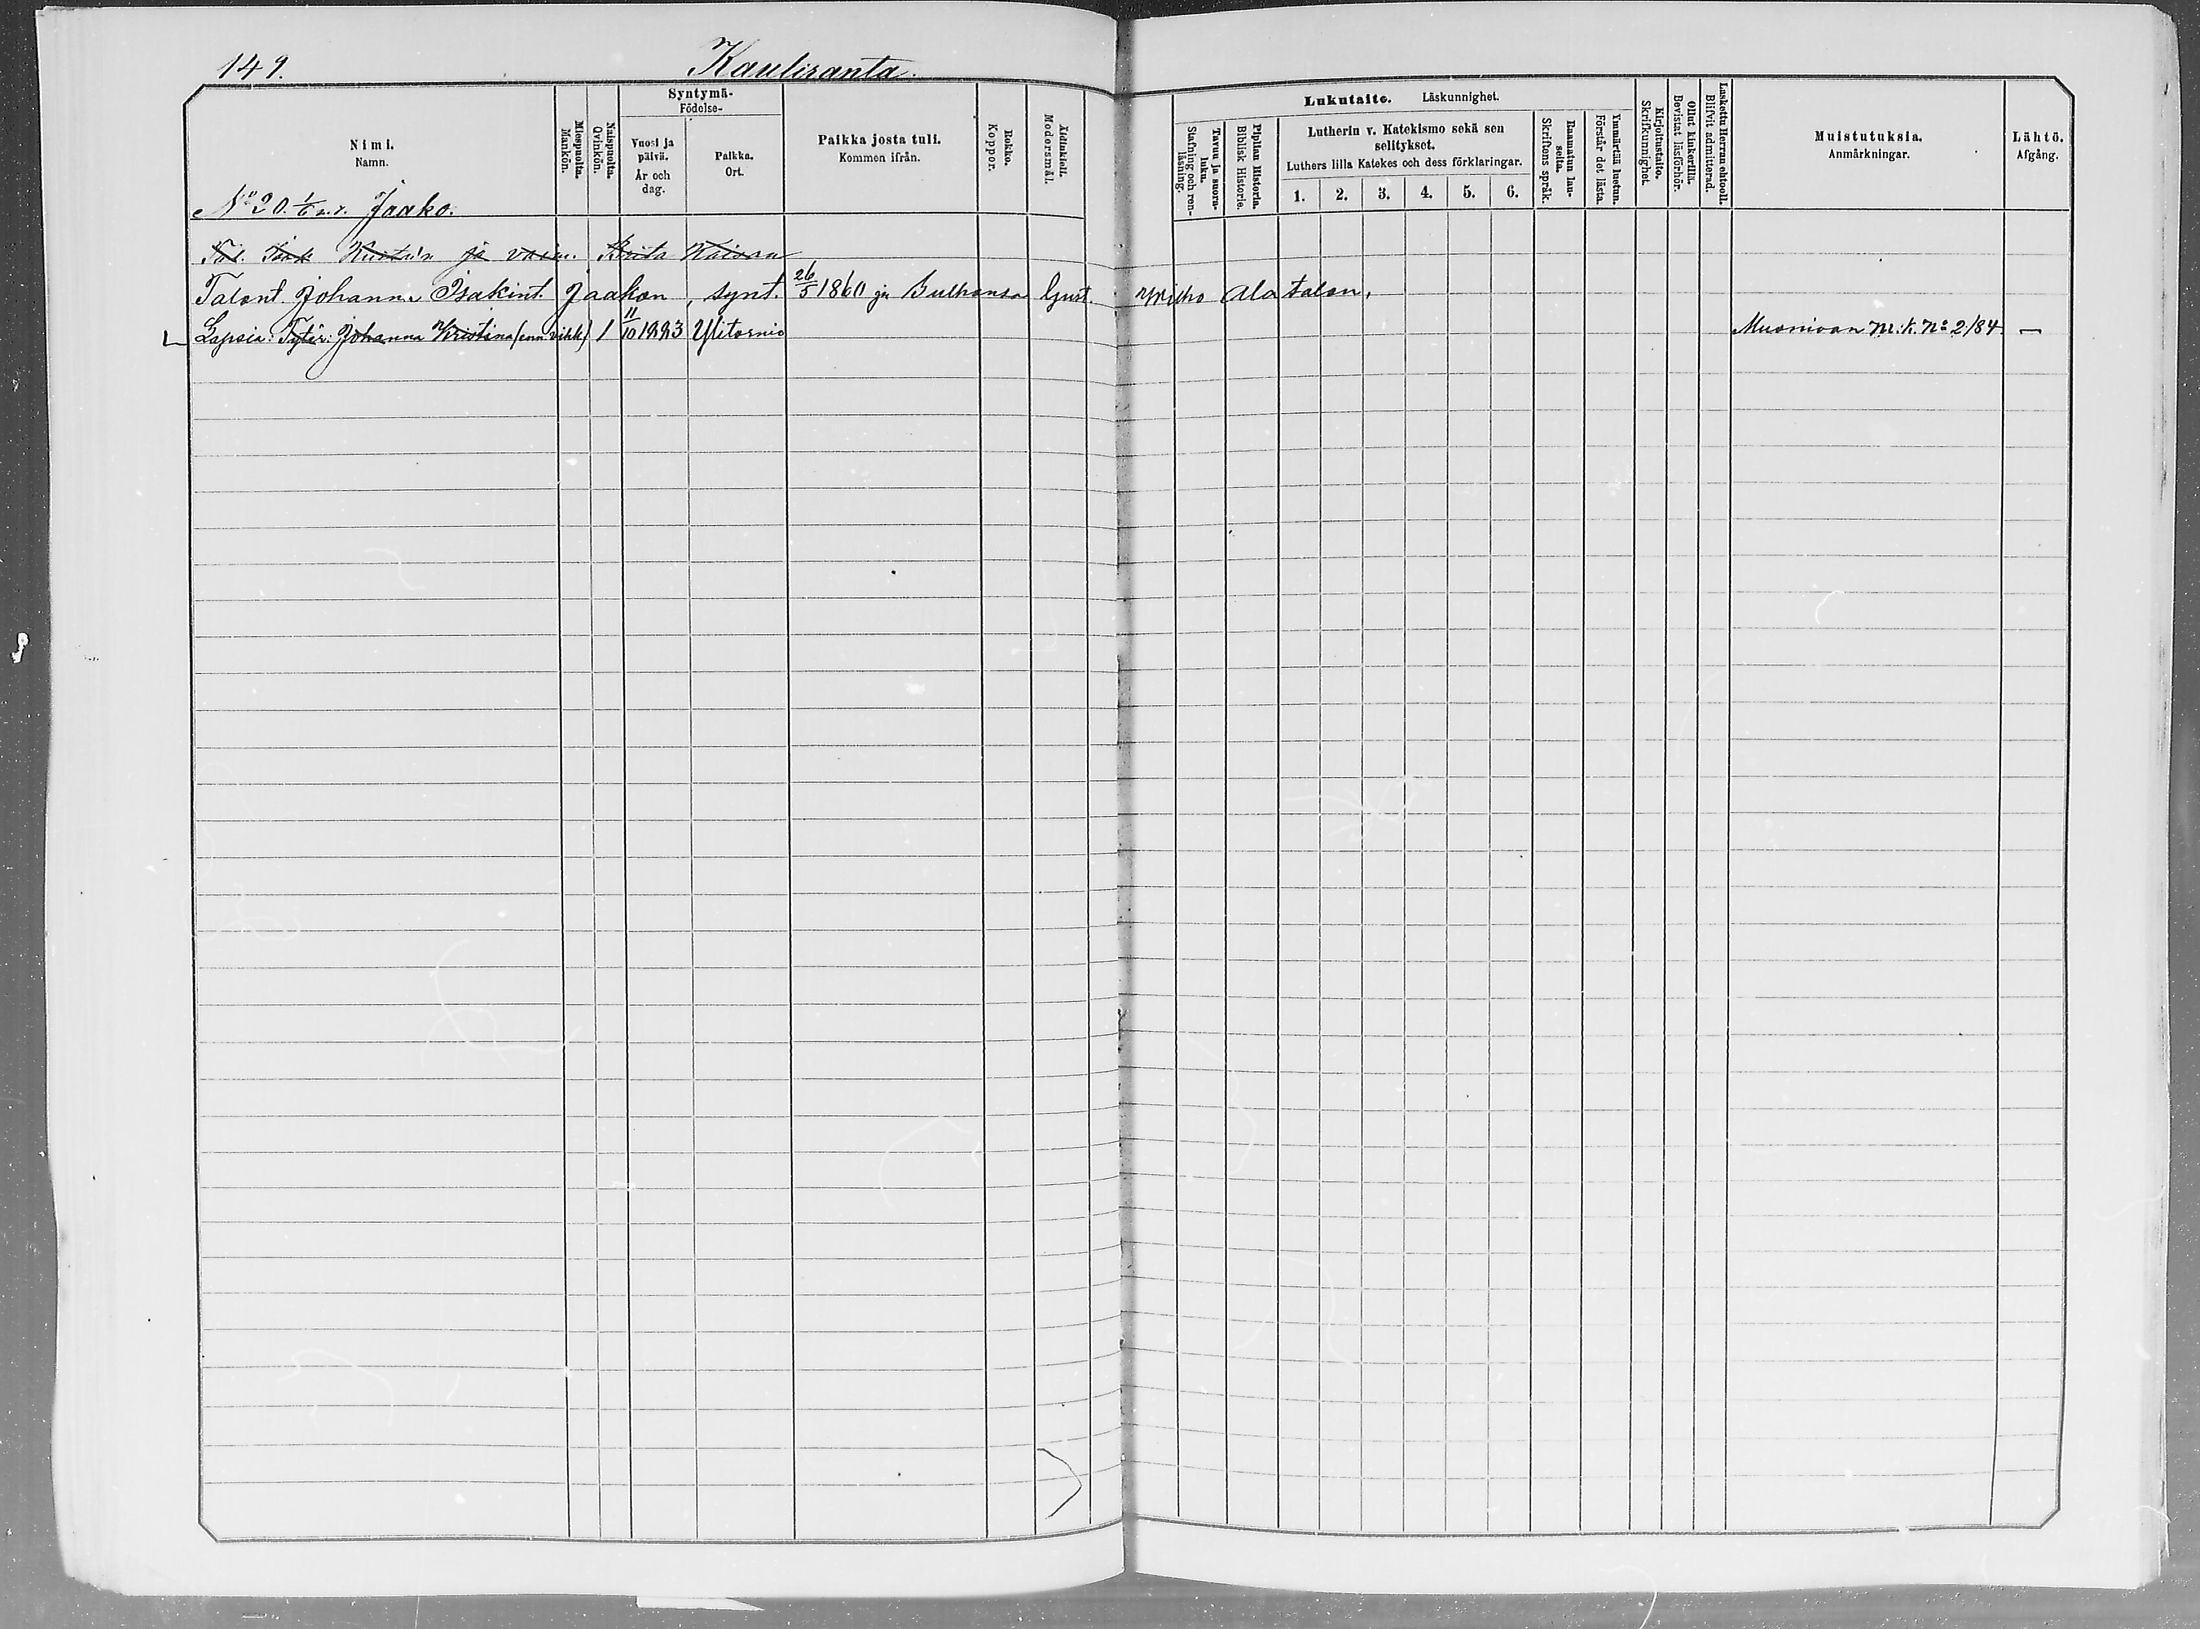 149.
Kauliranta.
Nimi.
Namn.
Miespuolia.
Mankön.
Naispuolia.
Qvinkön.
Syntymä-
Födelse-
Vuosi ja päivä.
År och dag.
Paikka.
Ort.
Paikka josta tuli.
Kommen ifrån.
Rokko.
Koppor.
Äidinkieli.
Modersmål.
Lukutaito. Läskunnighet.
Tavuu ja suora-luku.
Stafning och ren-läsning.
Piplian Historia.
Biblisk Historie.
Lutherin v. Katekismo sekä sen selitykset.
Luthers lilla Katekes och dess förklaringar.
1. 2. 3. 4. 5. 6.
Raamatun lau-seita.
Skriftens språk.
Ymmärtää luetun.
Förstår det lästa.
Kirjoitustaito.
Skrifkunnighet.
Ollut kinkerillä.
Bevistat läsförhör.
Laskettu Herran ehtooll.
Blifvit admitterad.
Muistutuksia.
Anmärkningar.
Lähtö.
Afgång.
No 20. 1/6 Jaako.
ja vaim. Brita
Talont. Johanna Isakint. Jaakon, synt. 26/5 1860 ja Gust. Alatalon,
Lapsia: Tytär: Johanna Kristina (enn. vihk.) 1 11/10 1883 Ylitornio Muonivan m.k. No 2/84 —